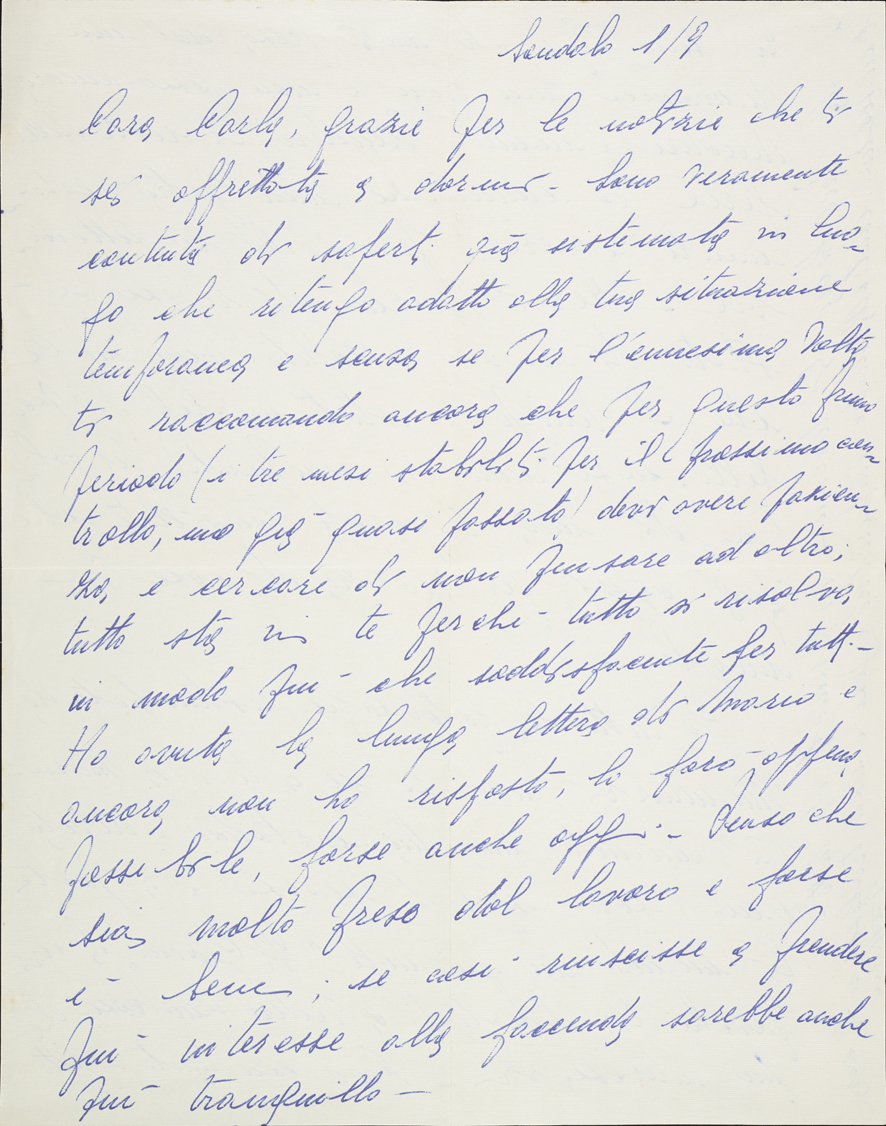 Sondalo 1/9
Cara Carla, grazie per le notizie che ti
sei affrettata a darmi - Sono veramente
contenta di saperti già sistemata in luo-
go che ritengo adatto alla tua situazione
temporanea e scusa se per l'ennesima volta
ti raccomando ancora che per questo primo
periodo (i tre mesi stabiliti per il prossimo con-
trollo; ma già quasi passato) devi avere pazien-
za, e cercare di non pensare ad altro;
tutto sta in te perchè tutto si risolva
in modo più che soddisfacente per tutti -
Ho avuta la lunga lettera di Mario e
ancora non ho risposto, lo farò appena
possibile, forse anche oggi - Penso che
sia molto preso dal lavoro e forse
è bene; se così riuscisse a prendere
più interesse alla faccenda sarebbe anche
più tranquillo -